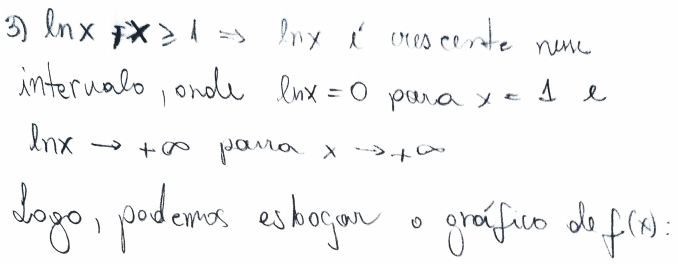 3) lnx , x ≥ 1 ⇒ lnx é crescente nesse
intervalo, onde lnx = 0 para x = 1 e
lnx → +∞ para x → +∞
Logo, podemos esboçar o gráfico de f(x):